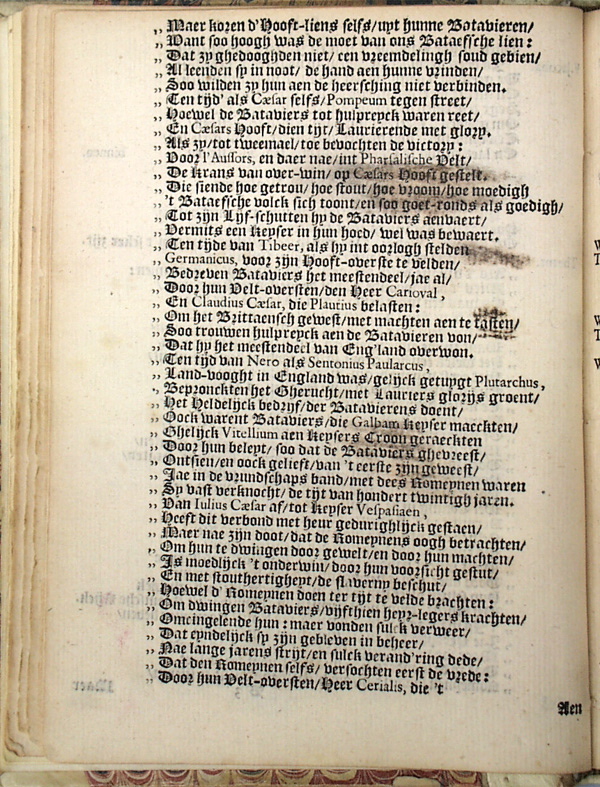 „ Maer koren d'Hooft-liens selfs/uyt hunne Batavieren/
„ Want soo hoogh was de moet van ons Bataefsche lien:
„ Dat zy ghedooghden niet/ een vreemdelingh soud gebien/
„ Al leenden sy in noot/ de hand aen hunne vrinden/
„ Soo wilden zy hun aen de heersching niet verbinden.
„ Ten tijd' als Cæsar selfs/Pompeum tegen street/
„ Hoewel de Bataviers tot hulpreyck waren reet/
„ En Cæsars Hooft/dien tijt/Laurierende met glory.
„ Als zy/tot tweemael/toe bevochten de victory:
„ Voor l'Aussors, en daer nae/int Pharsalische Velt/
„ De krans van over-win/ op Cæsars Hooft gestelt.
„ Die siende hoe getrou/ hoe stout/hoe vroom/hoe moedigh
„ 't Bataefsche volck sich toont/en soo goet-ronds als goedigh/
„ Tot zijn Lyf-schutten hy de Bataviers aenvaert/
„ Vermits een Keyser in hun hoed/ wel was bewaert.
„ Ten tijde van Tibeer, als hy int oorlogh stelden
„ Germanicus, voor zijn Hooft-overste te velden/
„ Bedreven Bataviers het meestendeel/jae al/
„ Door hun Velt-oversten/den Heer Carioval,
„ En Claudius Cæsar, die Plautius belasten:
„ Om het Brittaensch gewest/met machten aen te tasten/
„ Soo trouwen hulpreyck aen de Batavieren von/
„ Dat hy het meestendeel van Eng'land overwon.
„ Ten tijd van Nero als Sentonius Paularcus,
„ Land-vooght in England was/gelijck getuygt Plutarchus,
„ Bepronckten het Gherucht/met Lauriers glorijs groent/
„ Het Heldelijck bedrijf/der Batavierens doent/
„ Oock warent Bataviers/die Galbam Keyser maeckten/
„ Ghelijck Vitellium aen Keysers Croon geraeckten
„ Door hun beleyt/ soo dat de Bataviers ghevreest/
„ Ontsien/en oock gelieft/van 't eerste zijn geweest/
„ Jae in de vrundschaps band/met dees Romeynen waren
„ Sy vast verknocht/ de tijt van hondert twintigh jaren.
„ Van Iulius Cæsar af/tot Keyser Vespasiaen,
„ Heeft dit verbond met heur gedurighlijck gestaen/
„ Maer nae zijn doot/dat de Romeynens oogh betrachten/
„ Om hun te dwingen door gewelt/en door hun machten/
„ Is moedlijck 't onderwin/door hun voorsicht gestut/
„ En met stouthertigheyt/de slaverny beschut/
„ Hoewel d' Romeynen doen ter tijt te velde brachten:
„ Om dwingen Bataviers/vijfthien heyr-legers krachten/
„ Omcingelende hun: maer vonden sulck verweer/
„ Dat eyndelijck sp zijn gebleven in beheer/
„ Nae lange jarens strijt/en sulck verand'ring dede/
„ Dat den Romeynen selfs/ versochten eerst de vrede:
„ Door hun Velt-oversten/Heer Cerialis, die 't
Aen